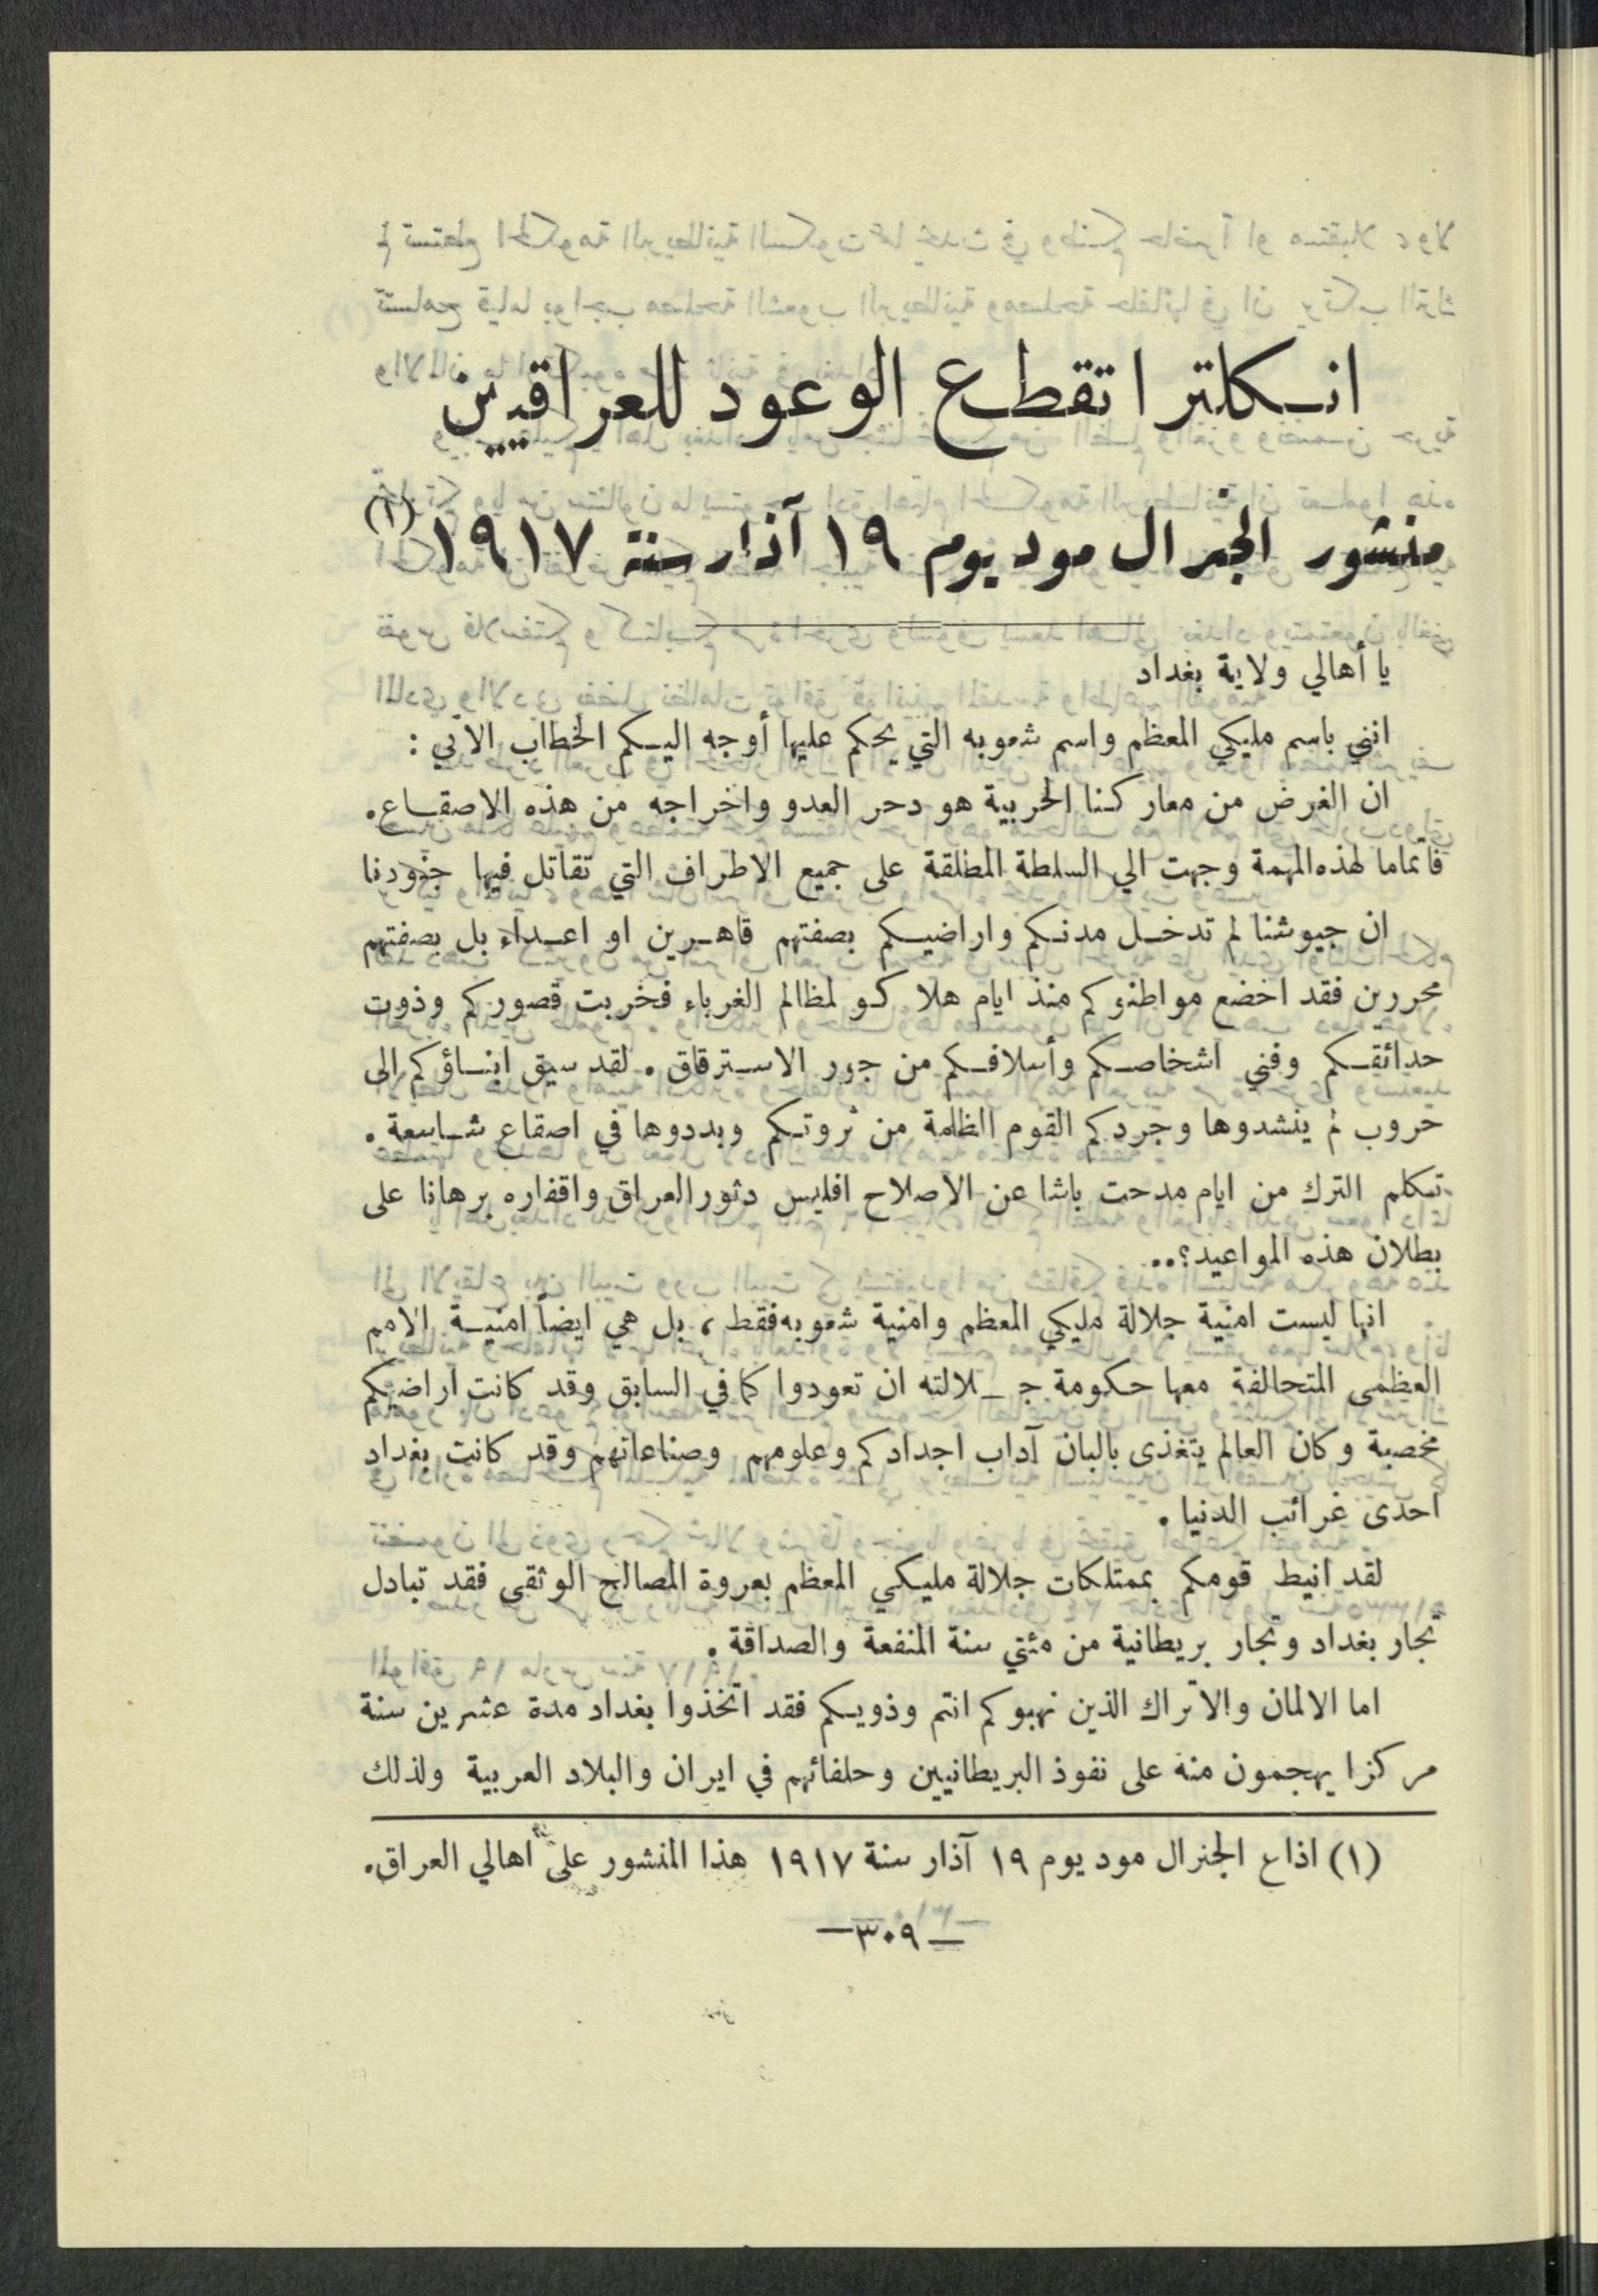 انكلترا تقطع الوعود للعراقيين
منشور الجنرال مود يوم ١٩ آذار سنة ١٩١٧ (١)
يا أهالي ولاية بغداد
انني باسم مليكي المعظم واسم شعوبه التي يحكم عليها أوجه اليكم الخطاب الآتي :
ان الغرض من معاركنا الحربية هو دحر العدو واخراجه من هذه الاصقاع.
فاتماما لهذه المهمة وجهت الي السلطة المطلقة على جميع الاطراف التي تقاتل فيها جنودنا
ان جيوشنا لم تدخل مدنكم واراضيكم بصفتهم قاهرين او اعداء بل بصفتهم
محررين فقد اخضع مواطنوكم منذ ايام هلاكو لمظالم الغرباء فخربت قصوركم وذوت
حدائقكم وفني اشخاصكم وأسلافكم من جور الاسترقاق . لقد سيق ابناؤكم الى
حروب لم ينشدوها وجردكم القوم الظلمة من ثروتكم وبددوها في اصقاع شاسعة .
تكلم الترك من ايام مدحت باشا عن الاصلاح افليس دثور العراق واقفاره برهانا على
بطلان هذه المواعيد؟..
انها ليست امنية جلالة مليكي المعظم وامنية شعوبه فقط ، بل هي ايضاً امنية الامم
العظمى المتحالفة معها حكومة جلالته ان تعودوا كما في السابق وقد كانت اراضيكم
مخصبة وكان العالم يتغذى بالبان آداب اجدادكم وعلومهم وصناعاتهم وقد كانت بغداد
احدى غرائب الدنيا .
لقد انيط قومكم بممتلكات جلالة مليكي المعظم بعروة المصالح الوثقى فقد تبادل
تجار بغداد وتجار بريطانية من مئتي سنة المنفعة والصداقة .
اما الالمان والاتراك الذين نهبوكم انتم وذويكم فقد اتخذوا بغداد مدة عشرين سنة
مركزا يهجمون منه على نفوذ البريطانيين وحلفائهم في ايران والبلاد العربية ولذلك
(١) اذاع الجنرال مود يوم ١٩ آذار سنة ١٩١٧ هذا المنشور على اهالي العراق.
— ٣٠٩ —